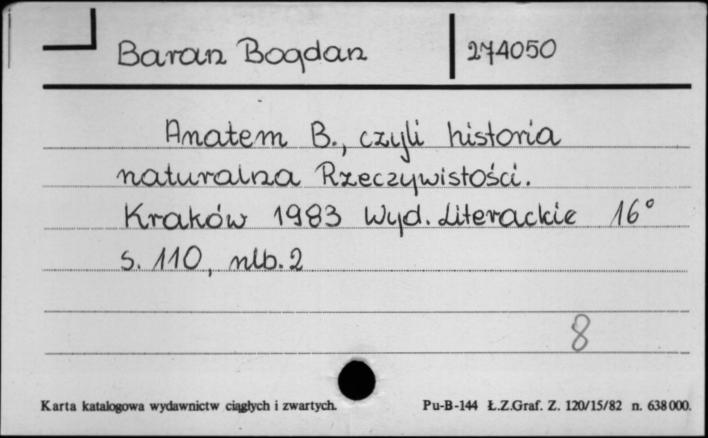 Baran Bogdan 274050
Anatem B., czyli historia
naturalna Rzeczywistości.
Kraków 1983 Wyd. Literackie 16°
s. 110, nlb. 2
8
Karta katalogowa wydawnictw ciągłych i zwartych. Pu-B-144 Ł.Z.Graf. Z. 120/15/82 n. 638000.